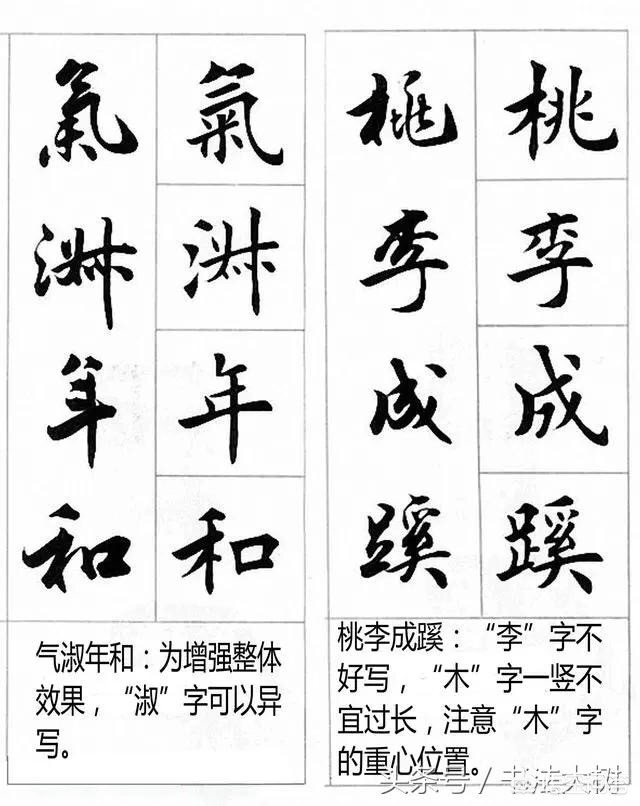 桃李成蹊
桃李成蹊
桃李成蹊：“李”字不
好写，“木”字一竖不
宜过长，注意“木”字
的重心位置。
氣淑年和
氣淑年和
气淑年和：为增强整体
效果，“淑”字可以异
写。
头条号／书法大树